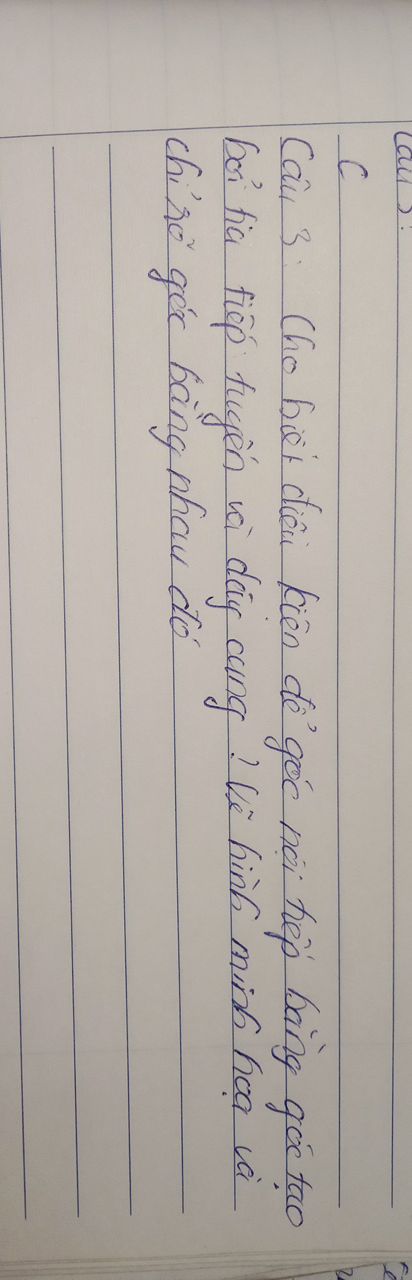 Câu 3:
C
Câu 3: Cho biết điều kiện để góc nội tiếp bằng góc tạo
bởi tia tiếp tuyến và dây cung? Vẽ hình minh hoạ và
chỉ rõ góc bằng nhau đó